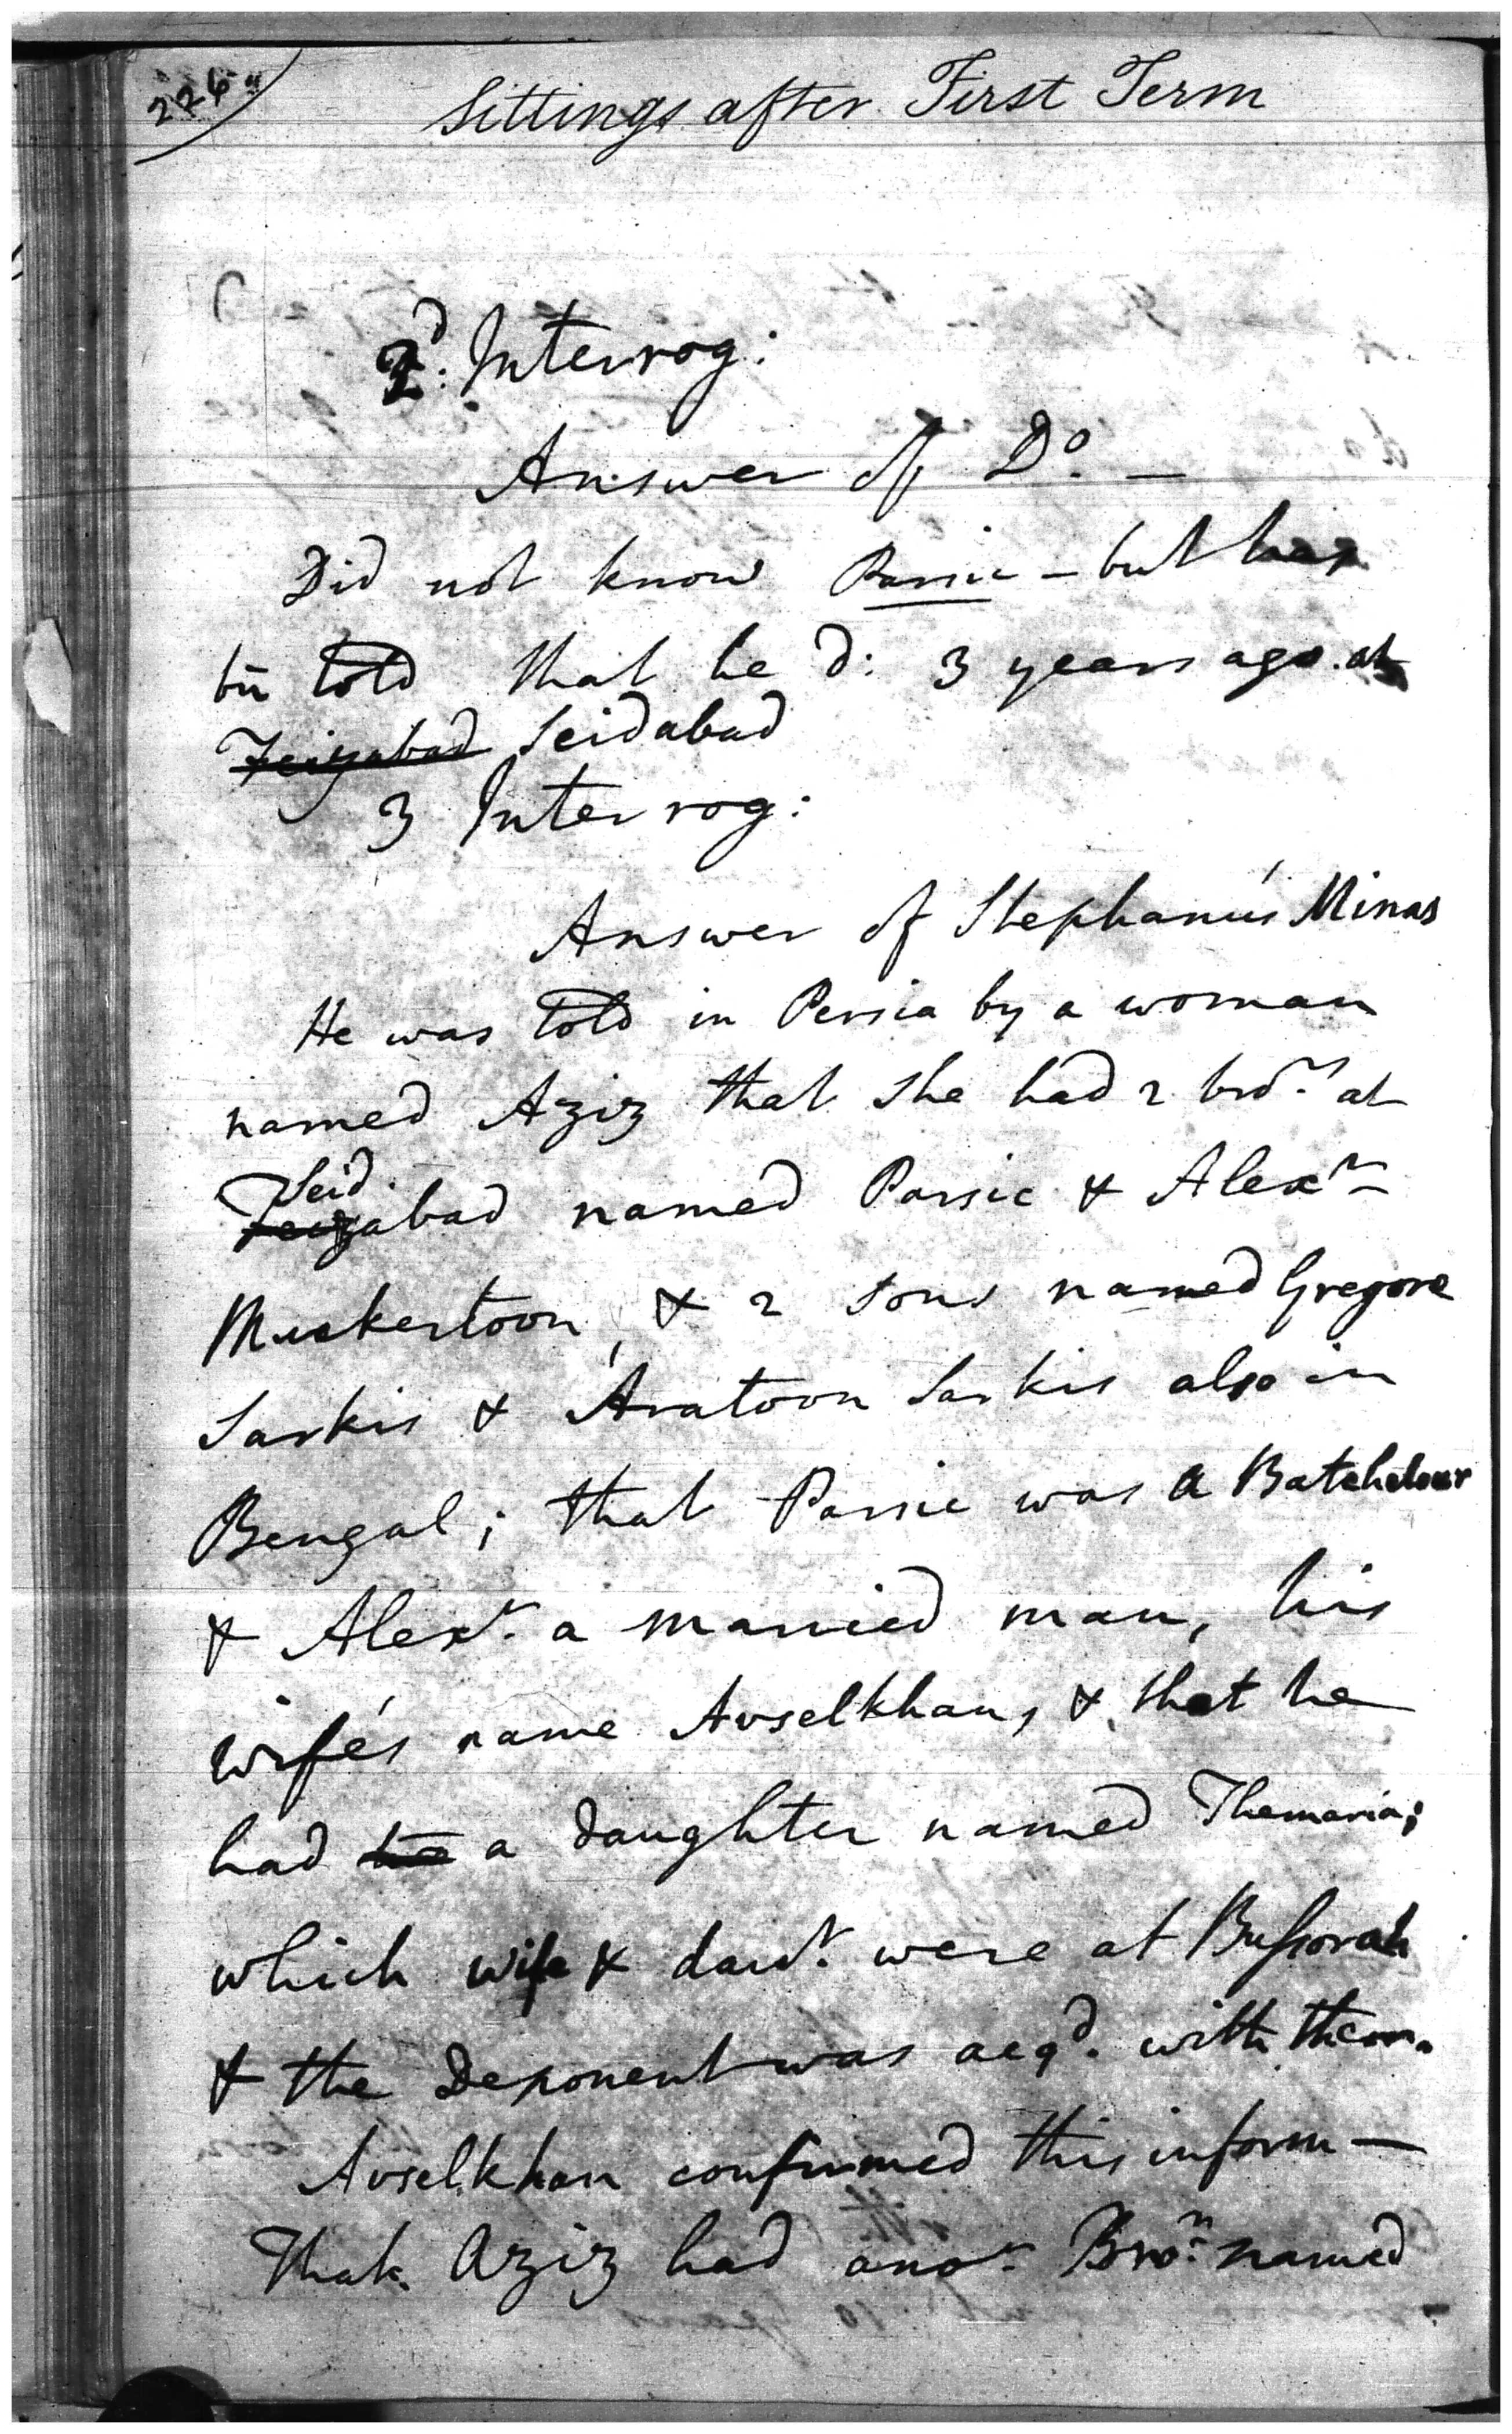 226
Sittings after First Term
2d. Interrog:
Answer of Do. —
Did not know Parsie – but has
bn told that he d: 3 years ago at
Feizabad Seidabad
3 Interrog:
Answer of Stephanus Minas
He was told in Persia by a woman
named Aziz that she had 2 bros. at
Seid.
Feizabad named Parsie & Alexr
Muckertoon, & 2 sons named Gregore
Sarkis & Aratoon Sarkis also in
Bengal; that Parsie was a Batchelour
& Alexr. a married man, his
wife's name Avselkhan, & that he
had a daughter named Themaria;
which wife & daur. were at Bussorah
& the Deponent was acqd. with them.
Avselkhan confirmed this inform—
That Aziz had anor. Bror. named